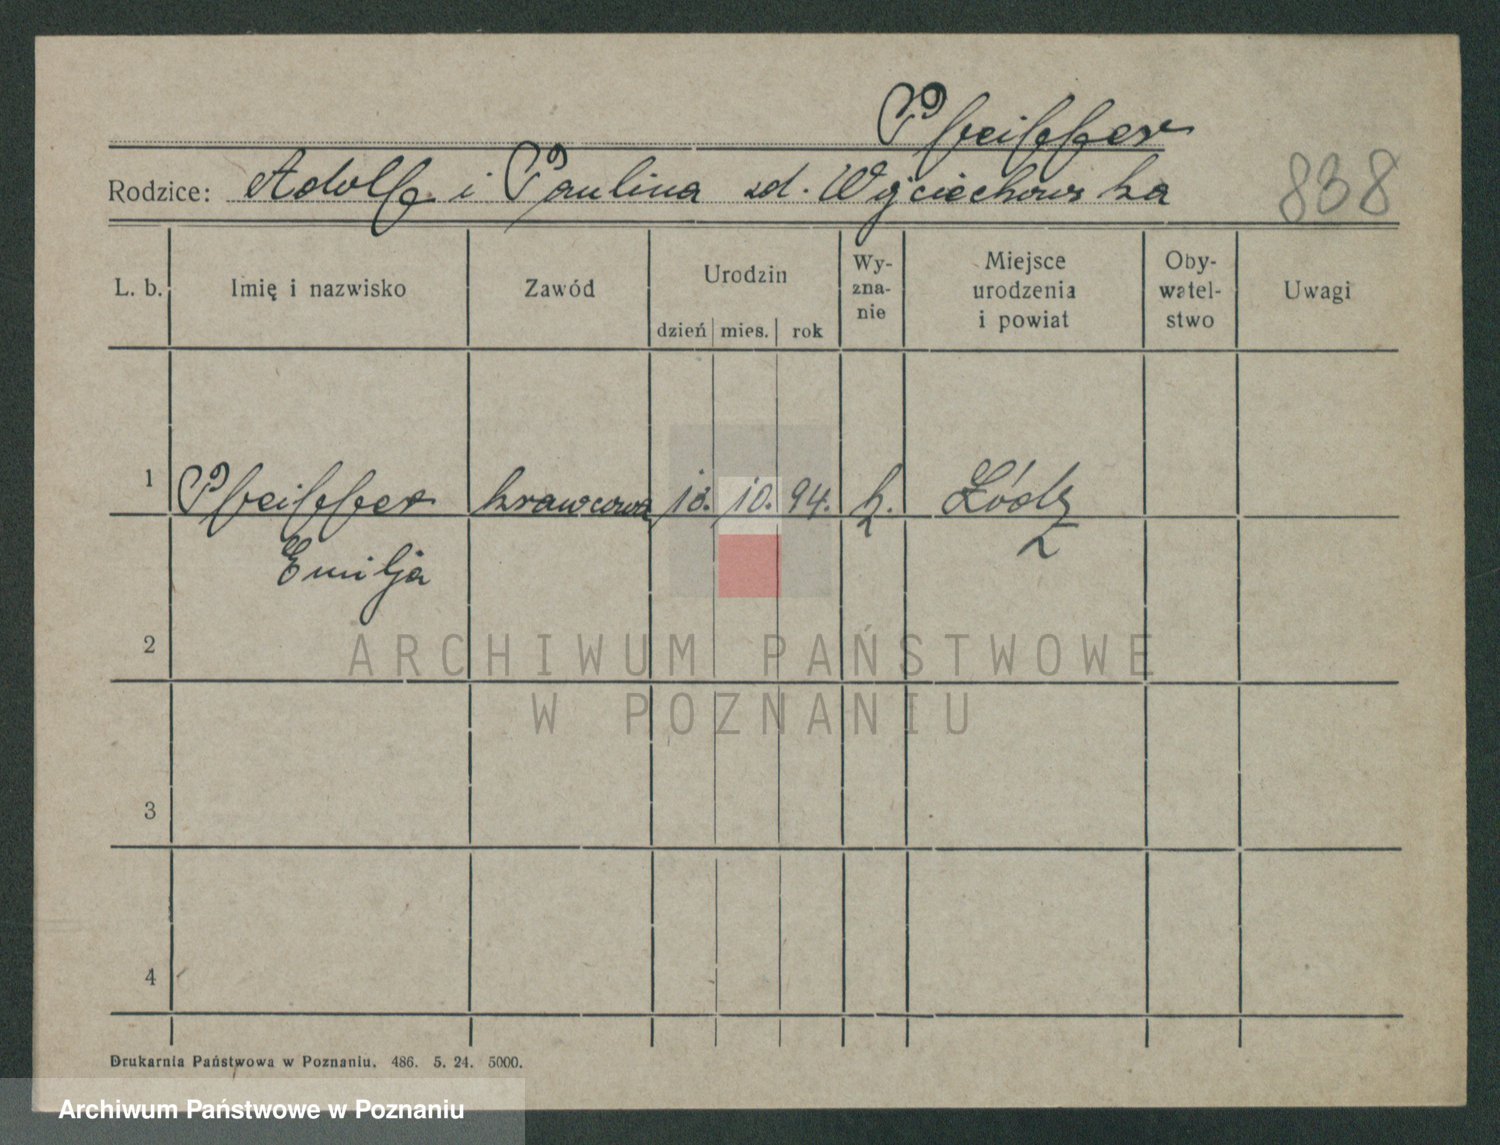 Pfeiffer
Rodzice: Adolf i Paulina zd. Wojciechowska
838
L. b.
Imię i nazwisko
Zawód
Urodzin
dzień mies. rok
Wy-
zna-
nie
Miejsce
urodzenia
i powiat
Oby-
watel-
stwo
Uwagi
1 Pfeiffer krawcowa 10. 94. k. Łódz
Emilja
2
3
4
ARCHIWUM PAŃSTWOWE
W POZNANIU
Drukarnia Państwowa w Poznaniu. 486. 5. 24. 5000.
Archiwum Państwowe w Poznaniu